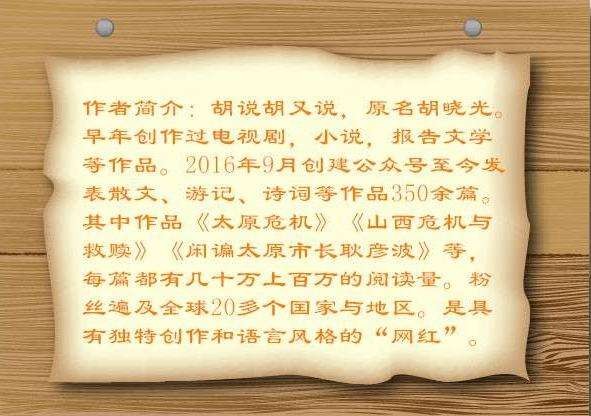 作者简介：胡说胡又说，原名胡晓光。
早年创作过电视剧，小说，报告文学
等作品。2016年9月创建公众号至今发
表散文、游记、诗词等作品350余篇。
其中作品《太原危机》《山西危机与
救赎》《闲谝太原市长耿彦波》等，
每篇都有几十万上百万的阅读量。粉
丝遍及全球20多个国家与地区。是具
有独特创作和语言风格的“网红”。